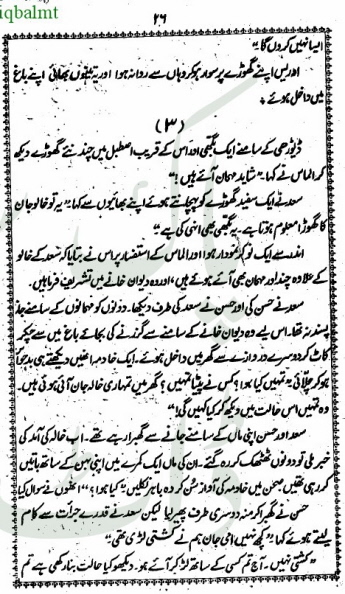 iqbalmt
۲۶
ایسا نہیں کروں گا"
اور یس اپنے گھوڑے پر سوار ہو کر وہاں سے روانہ ہوا اور یہ تینوں بھائی اپنے باغ
میں داخل ہوئے ۔
(۳)
ڈیوڑھی کے سامنے ایک بگھی اور اس کے قریب اصطبل میں چند نئے گھوڑے دیکھ
کر الماس نے کہا "شاید مہمان آئے ہیں!"
سعد نے ایک سفید گھوڑے کو پہچانتے ہوئے اپنے بھائیوں سے کہا "یہ تو خالو جان
کا گھوڑا معلوم ہوتا ہے۔ یہ بگھی بھی انہی کی ہے"
اندر سے ایک نوکر نمودار ہوا اور الماس کے استفسار پر اس نے بتایا کہ سعد کے خالو
کے علاوہ چند اور مہمان بھی آئے ہوئے ہیں، اور وہ دیوان خانے میں تشریف فرما ہیں۔
سعد نے حسن کی اور حسن نے سعد کی طرف دیکھا۔ دونوں کو مہمانوں کے سامنے جانا
پسند نہ تھا۔ اس لیے وہ دیوان خانے کے سامنے سے گزرنے کی بجائے باغ میں سے چکر
کاٹ کر دوسرے دروازے سے گھر میں داخل ہوئے۔ ایک خادمہ انھیں دیکھتے ہی بدحواس
ہو کر چلائی "تمہیں کیا ہوا؟ کس نے پیٹا تمہیں؟ گھر میں تمہاری خالہ جان آئی ہوئی ہیں۔
وہ تمہیں اس حالت میں دیکھ کر کیا کہیں گی!"
سعد اور حسن اپنی ماں کے سامنے جانے سے گھبرا رہے تھے۔ اب خالہ کی آمد کی
خبر ملی تو دونوں ٹھٹھک کر رہ گئے۔ ان کی ماں ایک کمرے میں اپنی بہن کے ساتھ باتیں
کر رہی تھیں صحن میں خادمہ کی آواز سن کر وہ باہر نکلیں "کیا ہوا؟" انھوں نے سوال کیا
حسن نے گھبرا کر منہ دوسری طرف پھیر لیا لیکن سعد نے قدرے جرأت سے کام
لیتے ہوئے کہا "کچھ نہیں امی جان ہم نے کشتی لڑی تھی"
"کشتی نہیں۔ آج تم کسی کے ساتھ لڑ کر آئے ہو۔ دیکھو کیا حالت بنا رکھی ہے تم